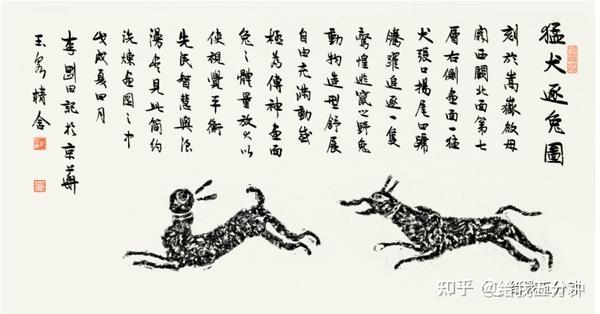 猛犬逐兔圖
刻於嵩嶽啟母
闕西闕北面第七
層右側畫面一猛
犬張口揚尾四蹄
騰躍追逐一隻
驚惶逃竄之野兔
動物造型舒展
自由充滿動感
極為傳神畫面
兔之體量放大以
使視覺平衡
先民智慧與浪
漫盡見此簡約
洗煉畫圖之中
戊戌夏四月
李剛田記於京華
玉泉精舍
知乎 @给我五分钟